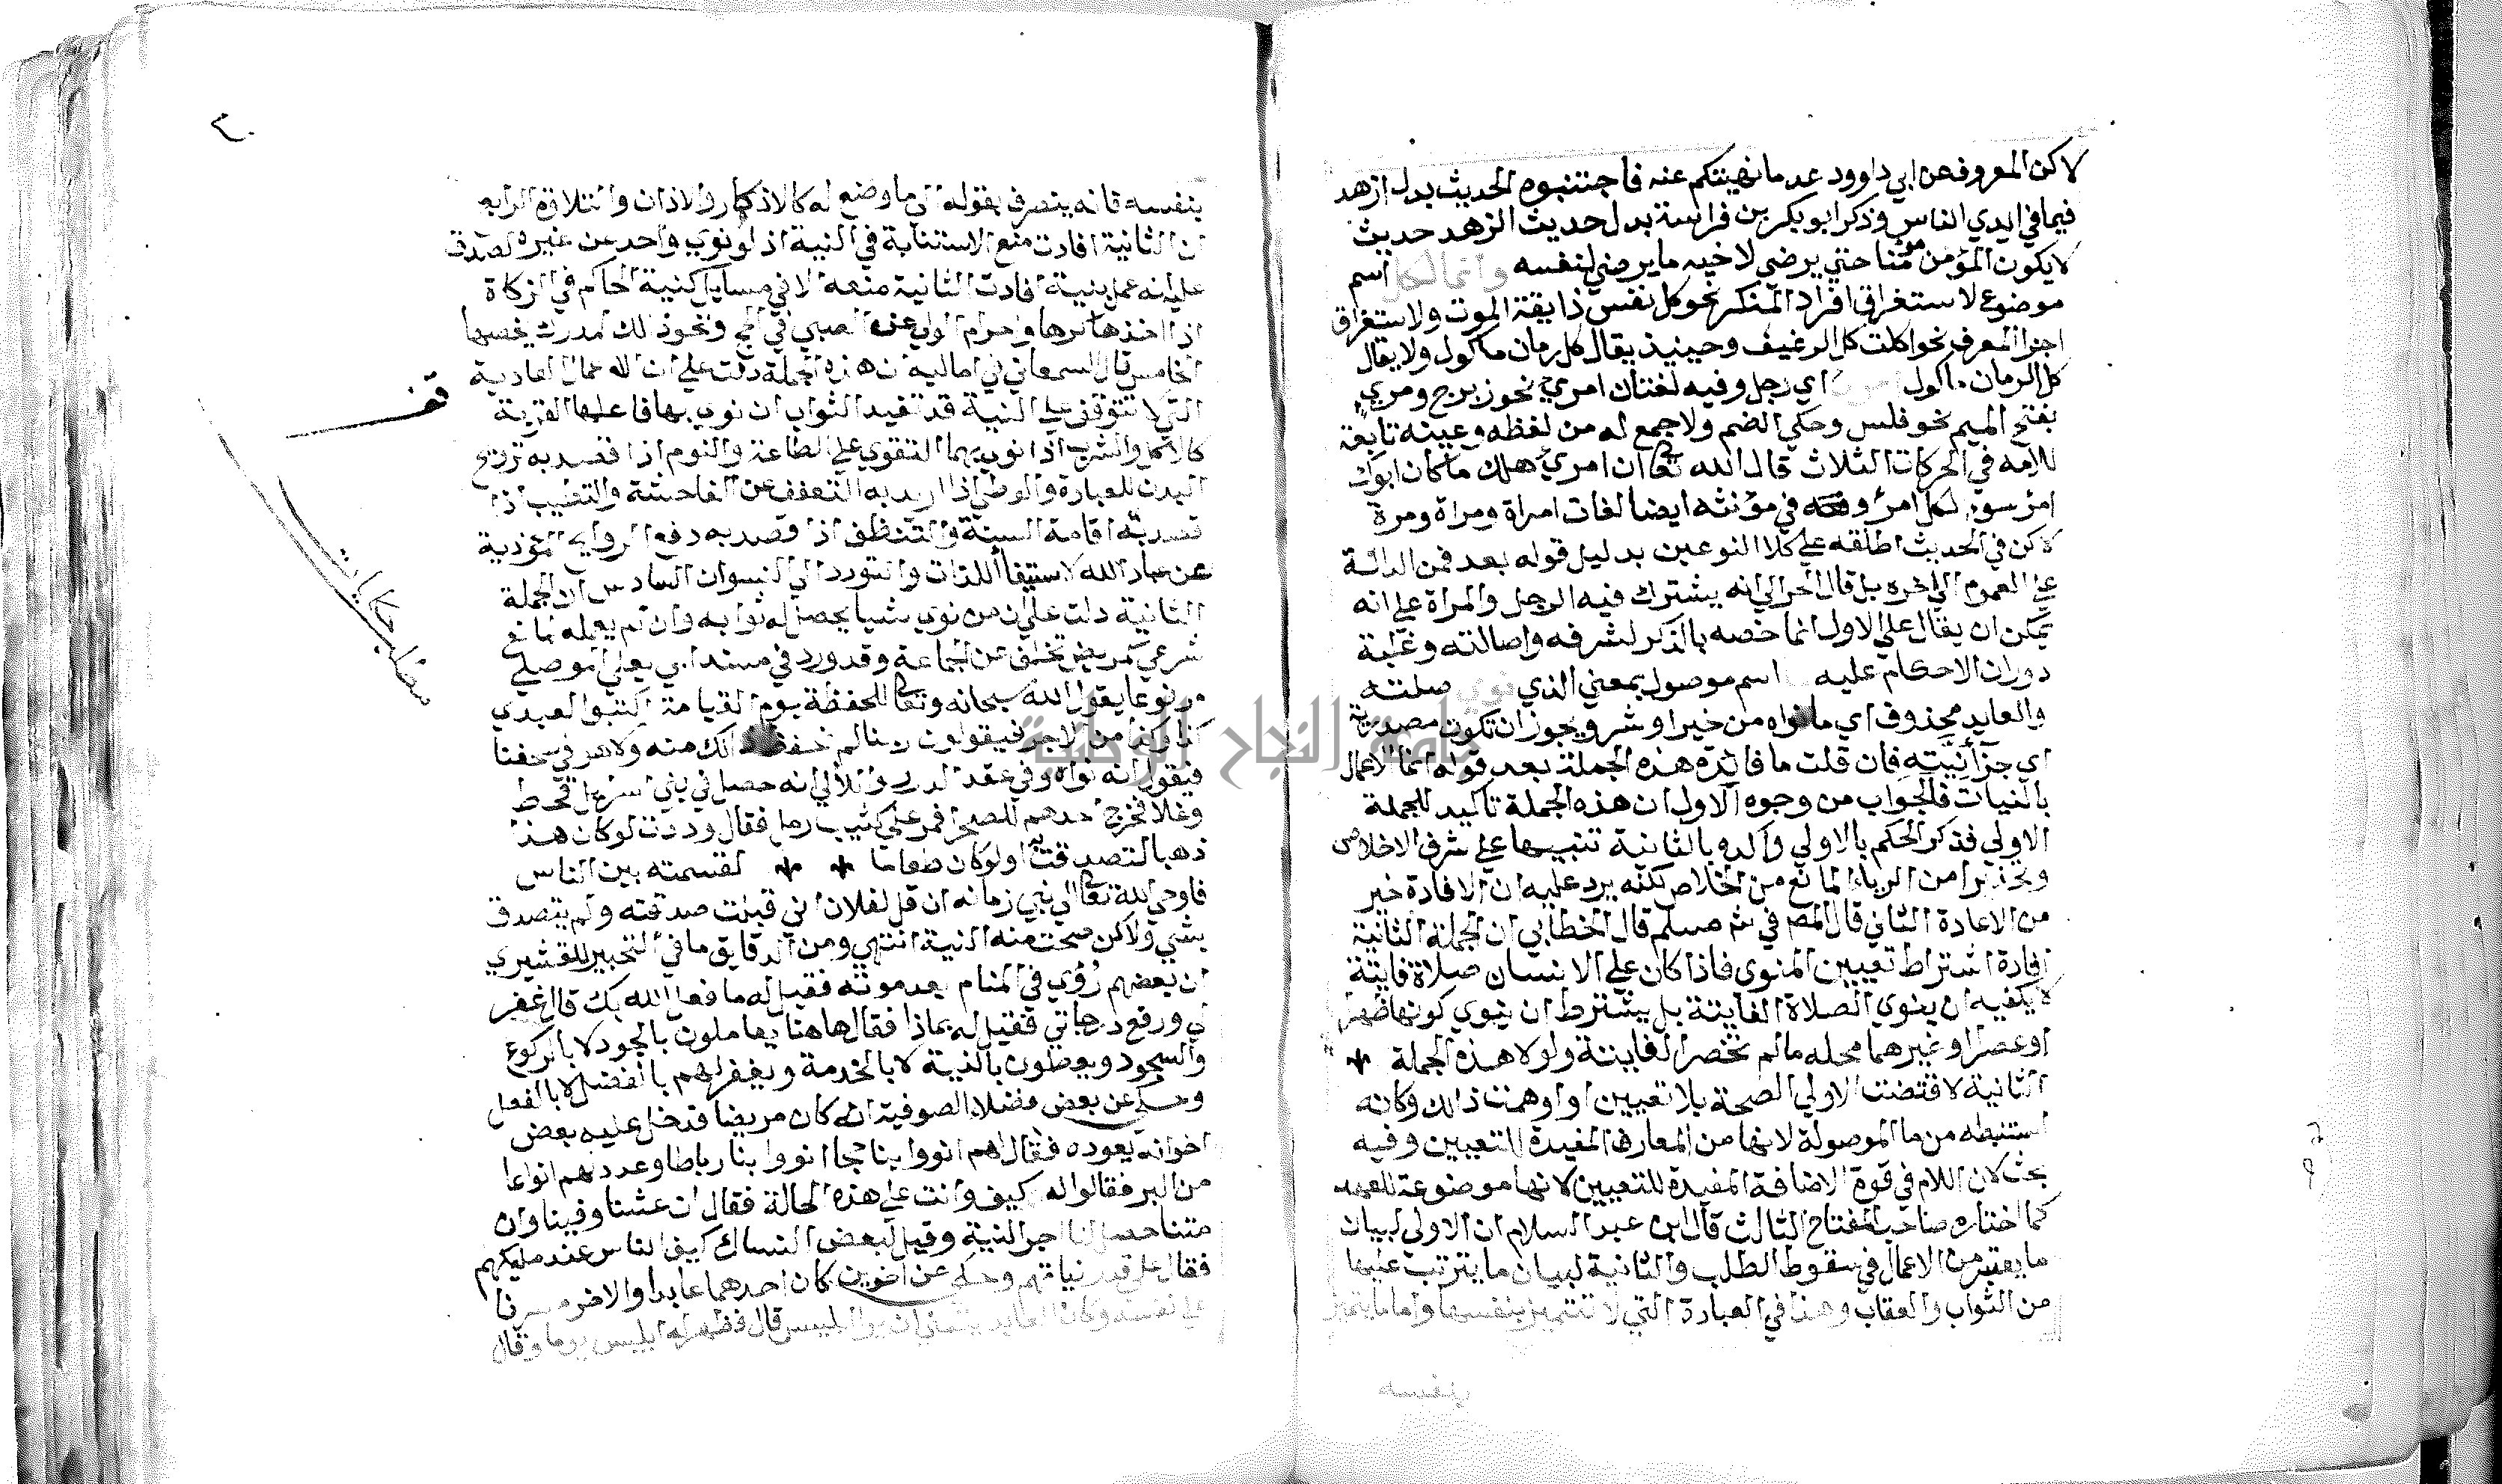 لاكن المعروف عن ابي داوود عد ما نهيتكم عنه فاجتنبوه الحديث بدل ازهد
فيما في ايدي الناس وذكر ابو بكر بن فراسة بدل حديث الزهد حديث
لا يكون المؤمن مؤمنا حتي يرضي لاخيه ما يرضي لنفسه وانما لكل اسم
موضوع لاستغراق افراد المنكر نحو كل نفس ذايقة الموت ولاستغراق
اجزا المعرف نحو اكلت كل الرغيف وحينيذ يقال كل رمان ماكول ولا يقال
كل الرمان ماكول اي رجل وفيه لغتان امرئ نحو زبرج ومرئ
بفتح الميم نحو فلس وحكي الضم ولا جمع له من لفظه وعينه تابعة
للامه في الحركات الثلاث قال الله تعا ان امرؤ هلك ما كان ابوك
امرء سوء لكل امرئ وفيه في مؤنثه ايضا لغات امراة ومراة ومرة
لاكن في الحديث اطلقه علي كلا النوعين بدليل قوله بعد فمن الدالة
علي العموم الي اخره بل قال الحرالي انه يشترك فيه الرجل والمراة علي انه
يمكن ان يقال علي الاول انما خصه بالذكر لشرفه واصالته وغلبة
دوران الاحكام عليه اسم موصول بمعني الذي نوي صلته
والعايد محذوف اي ما نواه من خير او شر ويجوز ان تكون مصدرية
اي جزآ نيته فان قلت ما فايدة هذه الجملة بعد قوله انما الاعمال
بالنيات فالجواب من وجوه الاول ان هذه الجملة تاكيد للجملة
الاولي فذكر الحكم بالاولي واكده بالثانية تنبيها علي شرف الاخلاص
وتحذيرا من الرياء المانع من الخلاص لكنه يرد عليه ان الافادة خير
من الاعادة الثاني قال المص في ش مسلم قال الخطابي ان الجملة الثانية
افادة اشتراط تعيين المنوي فاذا كان علي الانسان صلاة فايتة
لا يكفيه ان ينوي الصلاة الفايتة بل يشترط ان ينوي كونها ظهرا
او عصرا وغيرهما محله ما لم تنحصر الفايتة ولولا هذه الجملة
الثانية لاقتضت الاولي الصحة بلا تعيين او اوهمت ذالك وكانه
استنبطه من ما الموصولة لانها من المعارف المفيدة للتعيين وفيه
بحث لان اللام في قوة الاضافة المفيدة للتعيين لانها موضوعة للعهد
كما اختاره صاحب المفتاح الثالث قال ابن عبد السلام ان الاولي لبيان
ما يعتبر من الاعمال في سقوط الطلب والثانية لبيان ما يترتب عليها
من الثواب والعقاب وهذا في العبادة التي لا تتميز بنفسها واما ما يتميز
بنفسه
بنفسه فانه ينصرف بقوله الي ما وضع له كالاذكار والاذان والتلاوة الرابع
ان الثانية افادت منع الاستنابة في النية اذ لو نوي واحد عن غيره لصدق
عليه انه عمل بنية افادت الثانية منعه الا في مسايل كنية الحاكم في الزكاة
اذا اخذها كرها واحرام الولي عن الصبي في الحج ونحو ذالك لمدرك يخصها
الخامس قال السمعاني في اماليه ان هذه الجملة دلت علي ان الاعمال العادية
التي لا تتوقف علي النية قد تفيد الثواب ان نوي بها فاعلها القربة
كالاكل والشرب اذا نوي بهما التقوي علي الطاعة والنوم اذا قصد به ترويح
البدن للعبادة والوطي اذا اريد به التعفف عن الفاحشة والتطيب اذا
قصد به اقامة السنة والتنظف اذا قصد به دفع الروايح المؤذية
عن عباد الله لا استيفأ اللذات والتودد الي النسوان السادس ان الجملة
الثانية دلت علي ان من نوي شيا يحصل له ثوابه وان لم يعمله لمانع
شرعي كمريض تخلف عن الجماعة وقد ورد في مسند ابي يعلي الموصلي
مرفوعا يقول الله سبحانه وتعا للحفظة يوم القيامة اكتبوا لعبدي
كذا وكذا من الاجر فيقولون ربنا لم نحفظ ذالك منه ولا هو في صحفنا
فيقول انه نواه وفي عقد الدرر والللألي انه حصل في بني اسريل قحط
وغلا فخرج احدهم للصحرا فمر علي كثيب رمل فقال وددت لو كان هذا
ذهبا لتصدقت به او لو كان طعاما لقسمته بين الناس
فاوحي الله تعا الي نبي زمانه ان قل لفلان اني قبلت صدقته ولم يتصدق
بشي ولاكن صحت منه النية انتهي ومن الدقايق ما في التحبير للقشيري
ان بعضهم رُؤي في المنام بعد موته فقيل له ما فعل الله بك قال غفر
لي ورفع درجاتي فقيل له بماذا فقال هاهنا يعاملون بالجود لا بالركوع
والسجود ويعطون بالنية لا بالخدمة ويغفر لهم بالفضل لا بالفعل
وحكي عن بعض فضلاء الصوفية انه كان مريضا فدخل عليه بعض
اخوانه يعوده فقال لهم انووا بنا حجا انووا بنا رباطا وعدد لهم انواعا
من البر فقالوا له كيف وانت علي هذه الحالة فقال ان عشنا وفينا وان
متنا حصل لنا اجر النية وقيل لبعض النساك كيف الناس عند مليكهم
فقال علي قدر نياتهم وحكي عن اخوين كان احدهما عابدا والاخر مسرفا
علي نفسه وكان العابد يتمني ان يرا ابليس قال فظهر له ابليس يوما وقال
قف